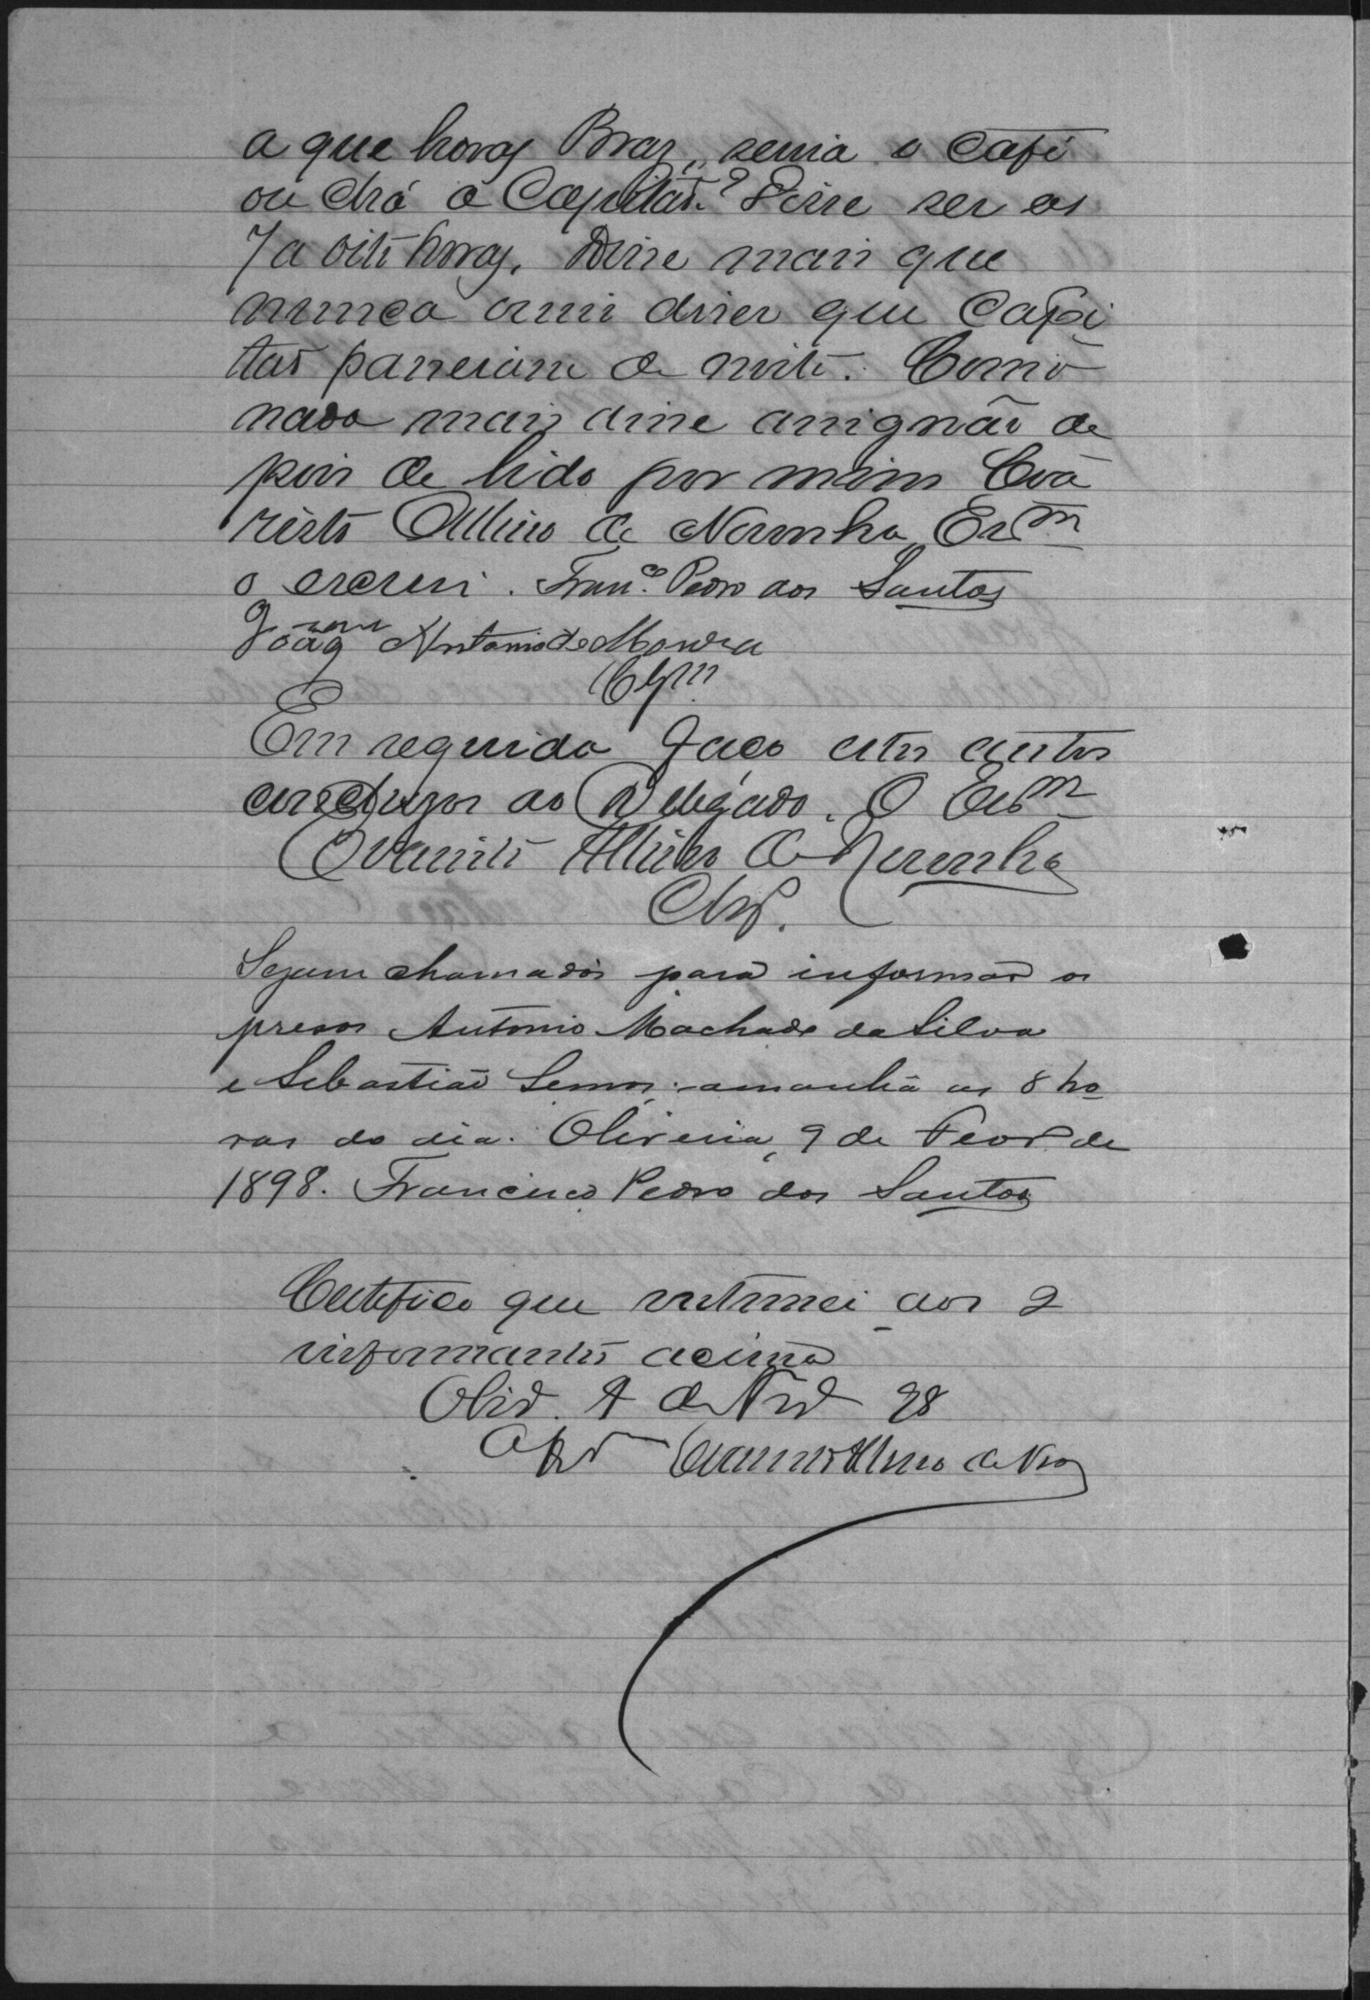 a que horas Braz, servia o café
ou chá a Capitão? Disse ser as
7 a oito horas. Disse mais que
nunca ouvi dizer que Capi
tão passeiava de noite. Como
nada mais disse assignão de
pois de lido por mim Eva
risto Albino de Noronha Escm
o escrevi. Franco Pedro dos Santos
Joaqm Antonio de Moura
Clm
Em seguida faço estes autos
conclusos ao Delegado. O Escm
Evaristo Albino de Noronha
Clsos.
Sejam chamados para informar os
presos Antonio Machado da Silva
e Sebastião Lemos, amanhã as 8 ho
ras do dia. Oliveira, 9 de Fevro de
1898. Francisco Pedro dos Santos
Certifico que intimei aos 2
informantes acima
Olivra 9 de Fevro 98
Evaristo Albino de Nra